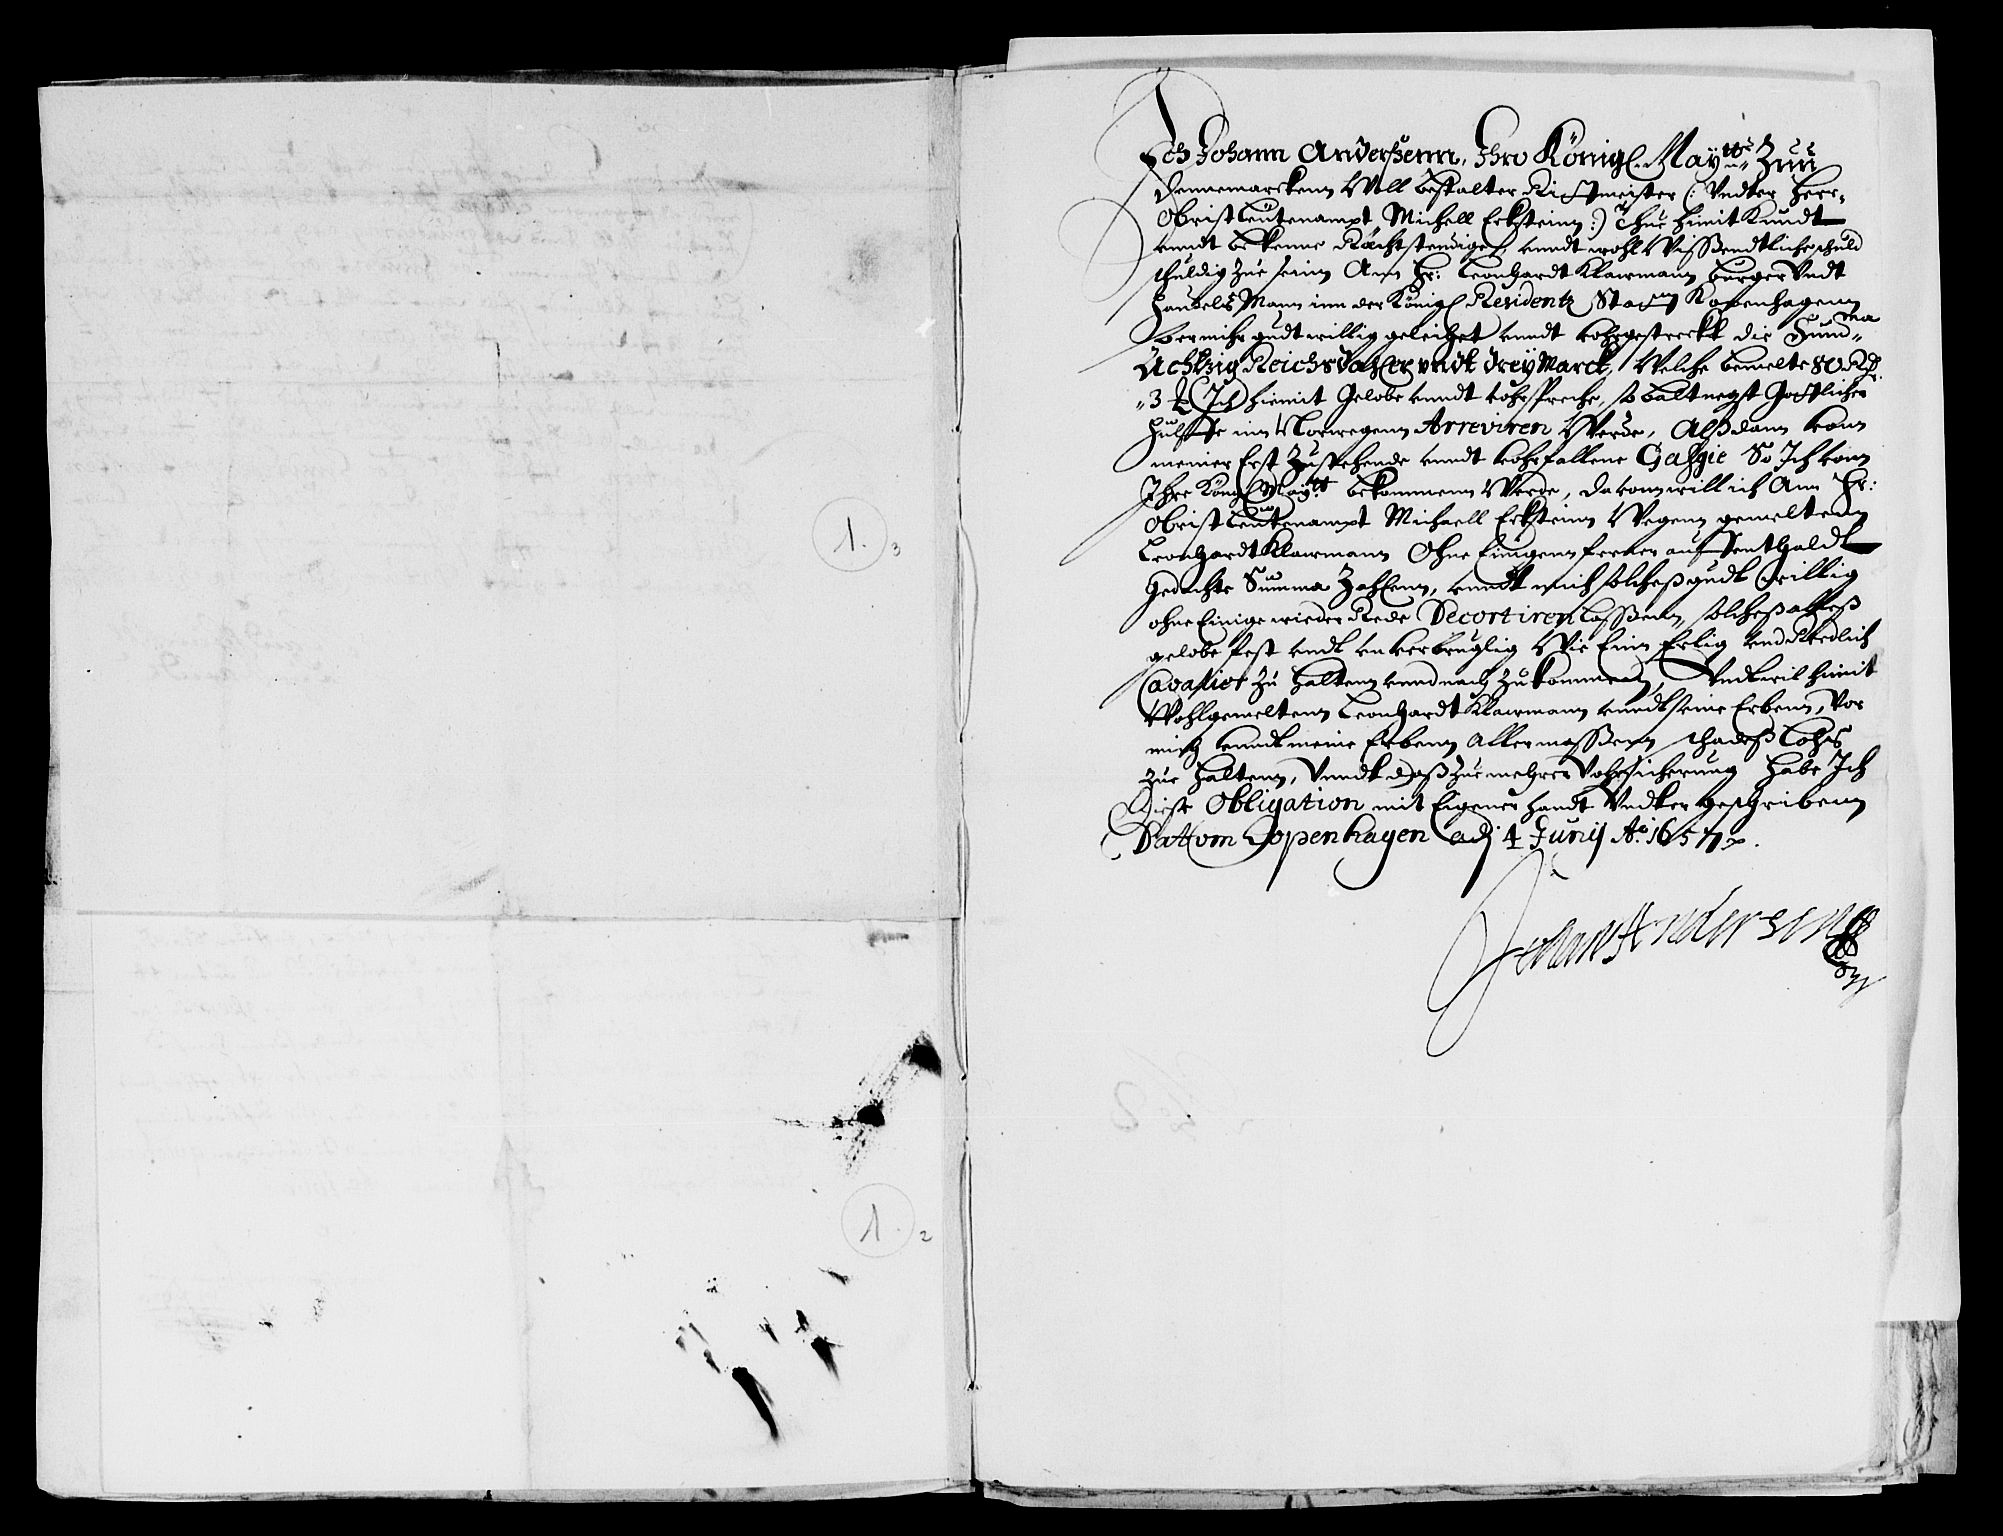 1. 3
1. 2
Ich Johann Anderßenn, Ihro Königl. Maytt: Zuu
Dennemarckenn Woll bestalter Ritmeister (: Vndter Herr„
Obrist Leutenampt Michell Ecksteinn :) Thue himit Kundt
vnndt bekenne Rächtstendiger vnndt wohl Wissendtliche schuld
schuldig zue seinn Ann Hr: Leonhardt Klawmann burger Vndt
Handels Mann inn der Königl Residentz Stadt Kopenhagenn
der mihr gudtwillig geleihet vnndt vohrgestreckt die Summa
Achtzig Reichsdaler vndt drey Marck, Welche bemelte 80 Rd
„3 Ich hiemit Gelobe vnndt vohrspreche, so balt negst Gottlicher
hulffe inn Norwegenn Arreviren Werde, Alßdann vonn
meiner Erst Zustehende vnndt vohrfallene Gahgie So Ich vonn
Ihre Königl Maytt bekommenn Werde, davonn will ich Ann Hr:
Obrist Leutenampt Michaell Ecksteinn Wegenn gemeltenn
Leonhardt Klawmann Ohne Einigenn ferner auffenthaldt
Gedachte Summa Zahlenn, vnndt mich solcheß gudt willig
ohne Einige wieder Rede Decortiren Lassenn, solcheß alleß
gelobe fest vndt vnverbruglig Wie Einn Erlig vnd Redlich
Cavalier zu haltenn vnnd nach Zukommenn, Vndt wil himit
Wohlgemeltenn Leonhardt Klawmann vnndt seine Erbenn, Vor
mich vnndt meine Erbenn Allermassenn schadeß Lohs
zue haltenn, Vnndt daß zue mehrer Vohrsicherung habe Ich
Diese Obligation mit Eigener Handt Vndter geschribenn
Dattum Copenhagen adj 4 Junij Ao: 1657
Johan Andersen